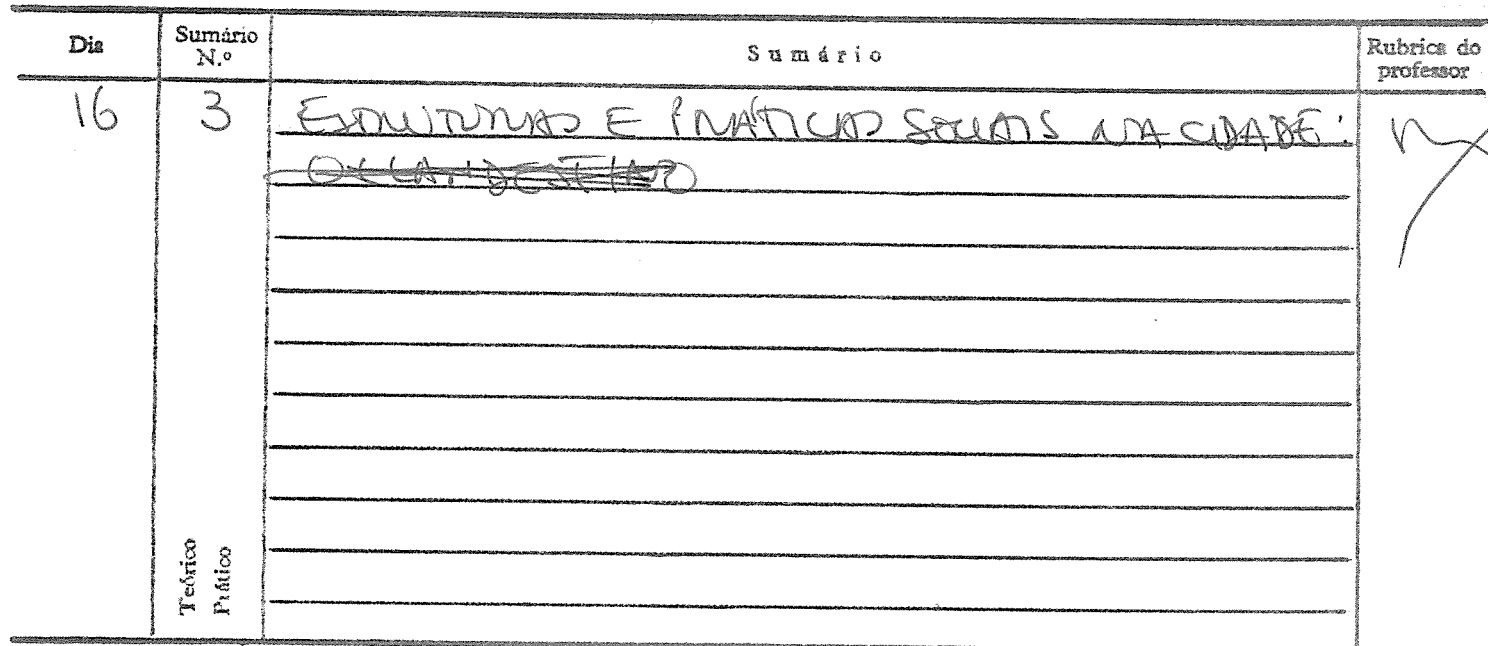 Dia
Sumário N.º
Sumário
Rubrica do professor
16
3
ESTRUTURAS E PRÁTICAS SOCIAIS NA CIDADE:
Teórico
Prático